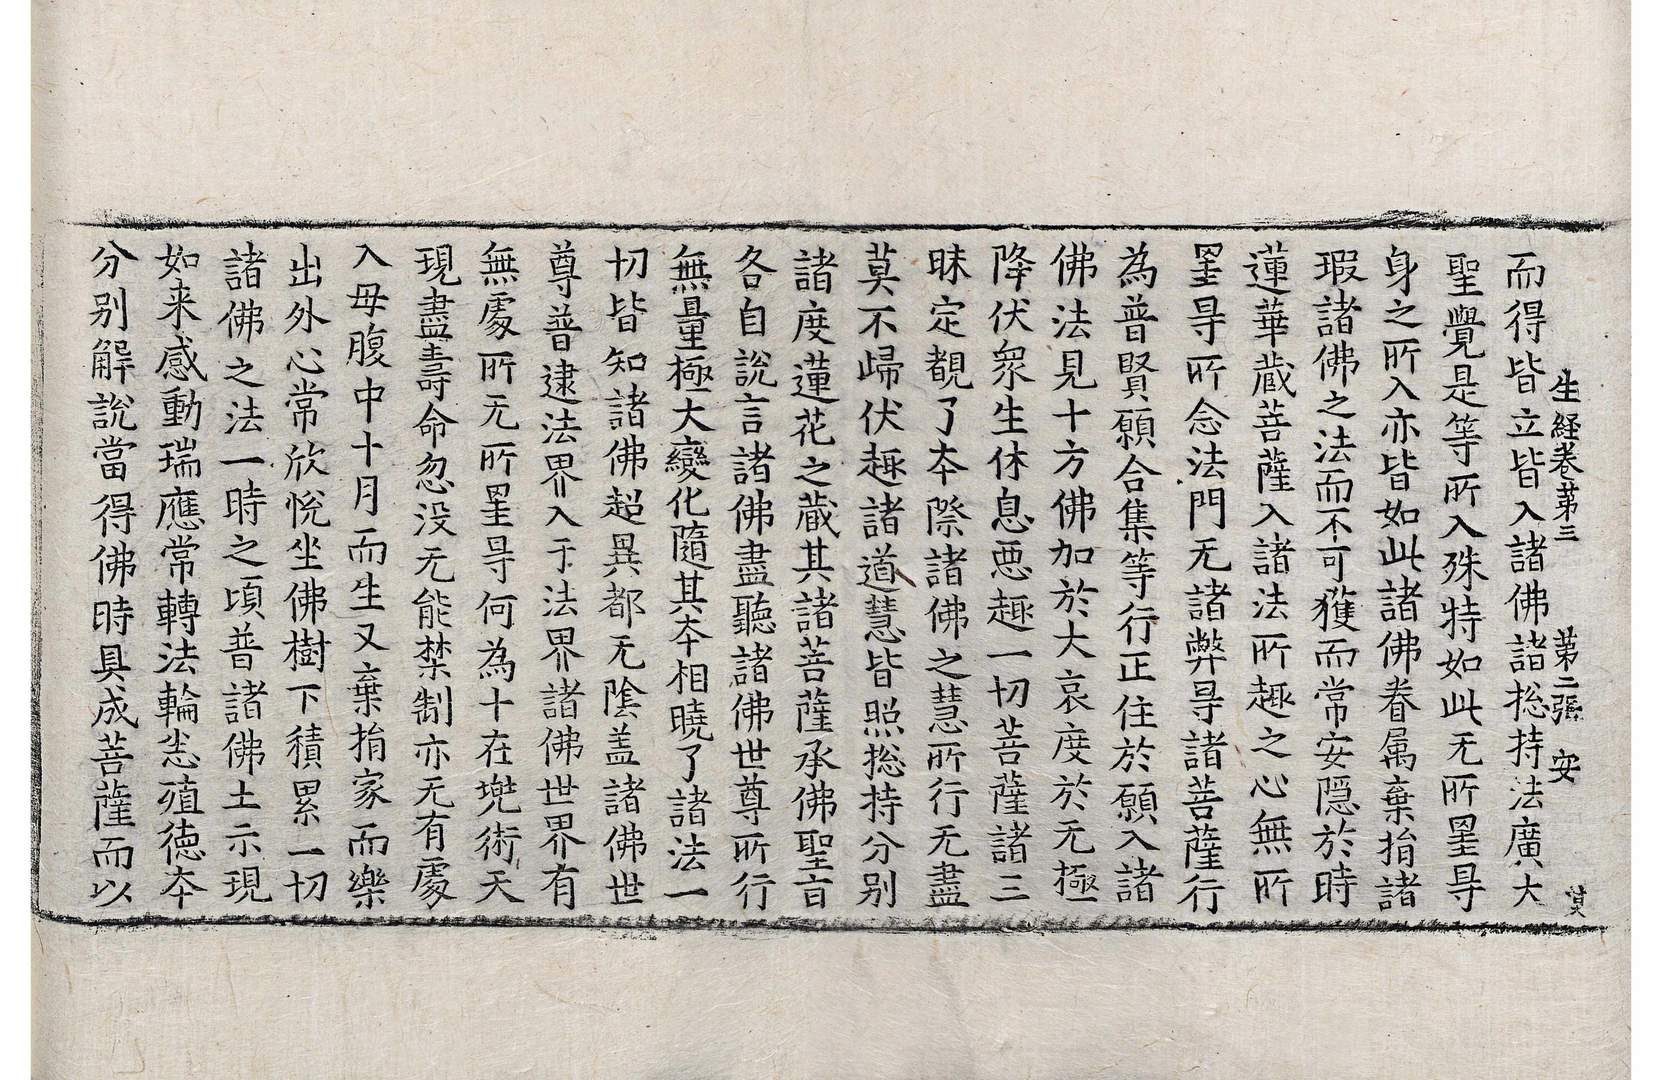 生経卷第三 第二張 安
而得皆立皆入諸佛諸捴持法廣大
聖覺是等所入殊特如此无所罣㝵
身之所入亦皆如此諸佛眷属棄捐諸
瑕諸佛之法而不可獲而常安隠於時
蓮華蔵菩薩入諸法所趣之心無所
罣㝵所念法門无諸弊㝵諸菩薩行
為普賢願合集等行正住於願入諸
佛法見十方佛加於大哀度於无極
降伏衆生休息悪趣一切菩薩諸三
昧定覩了夲際諸佛之慧所行无盡
莫不歸伏趣諸道慧皆照捴持分别
諸度蓮花之蔵其諸菩薩承佛聖旨
各自說言諸佛盡聽諸佛世尊所行
無量極大變化隨其夲相曉了諸法一
切皆知諸佛超異都无陰盖諸佛世
尊普逮法界入于法界諸佛世界有
無處所无所罣㝵何為十在兠術天
現盡壽命忽没无能禁制亦无有處
入母腹中十月而生又棄捐家而樂
出外心常欣悅坐佛樹下積累一切
諸佛之法一時之頃普諸佛土示現
如来感動瑞應常轉法輪恣殖德夲
分别解說當得佛時具成菩薩而以